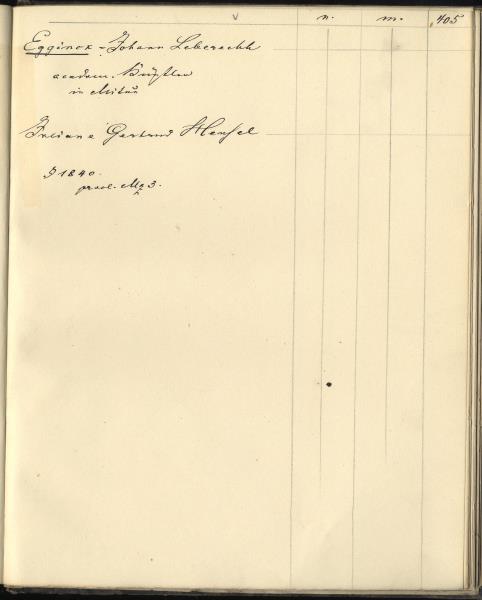 n. m. 405
Egginck - Johann Leberecht
academ. Künstler
in Mitau
Juliane Gertrud Hensel
1840.
procl. 3.